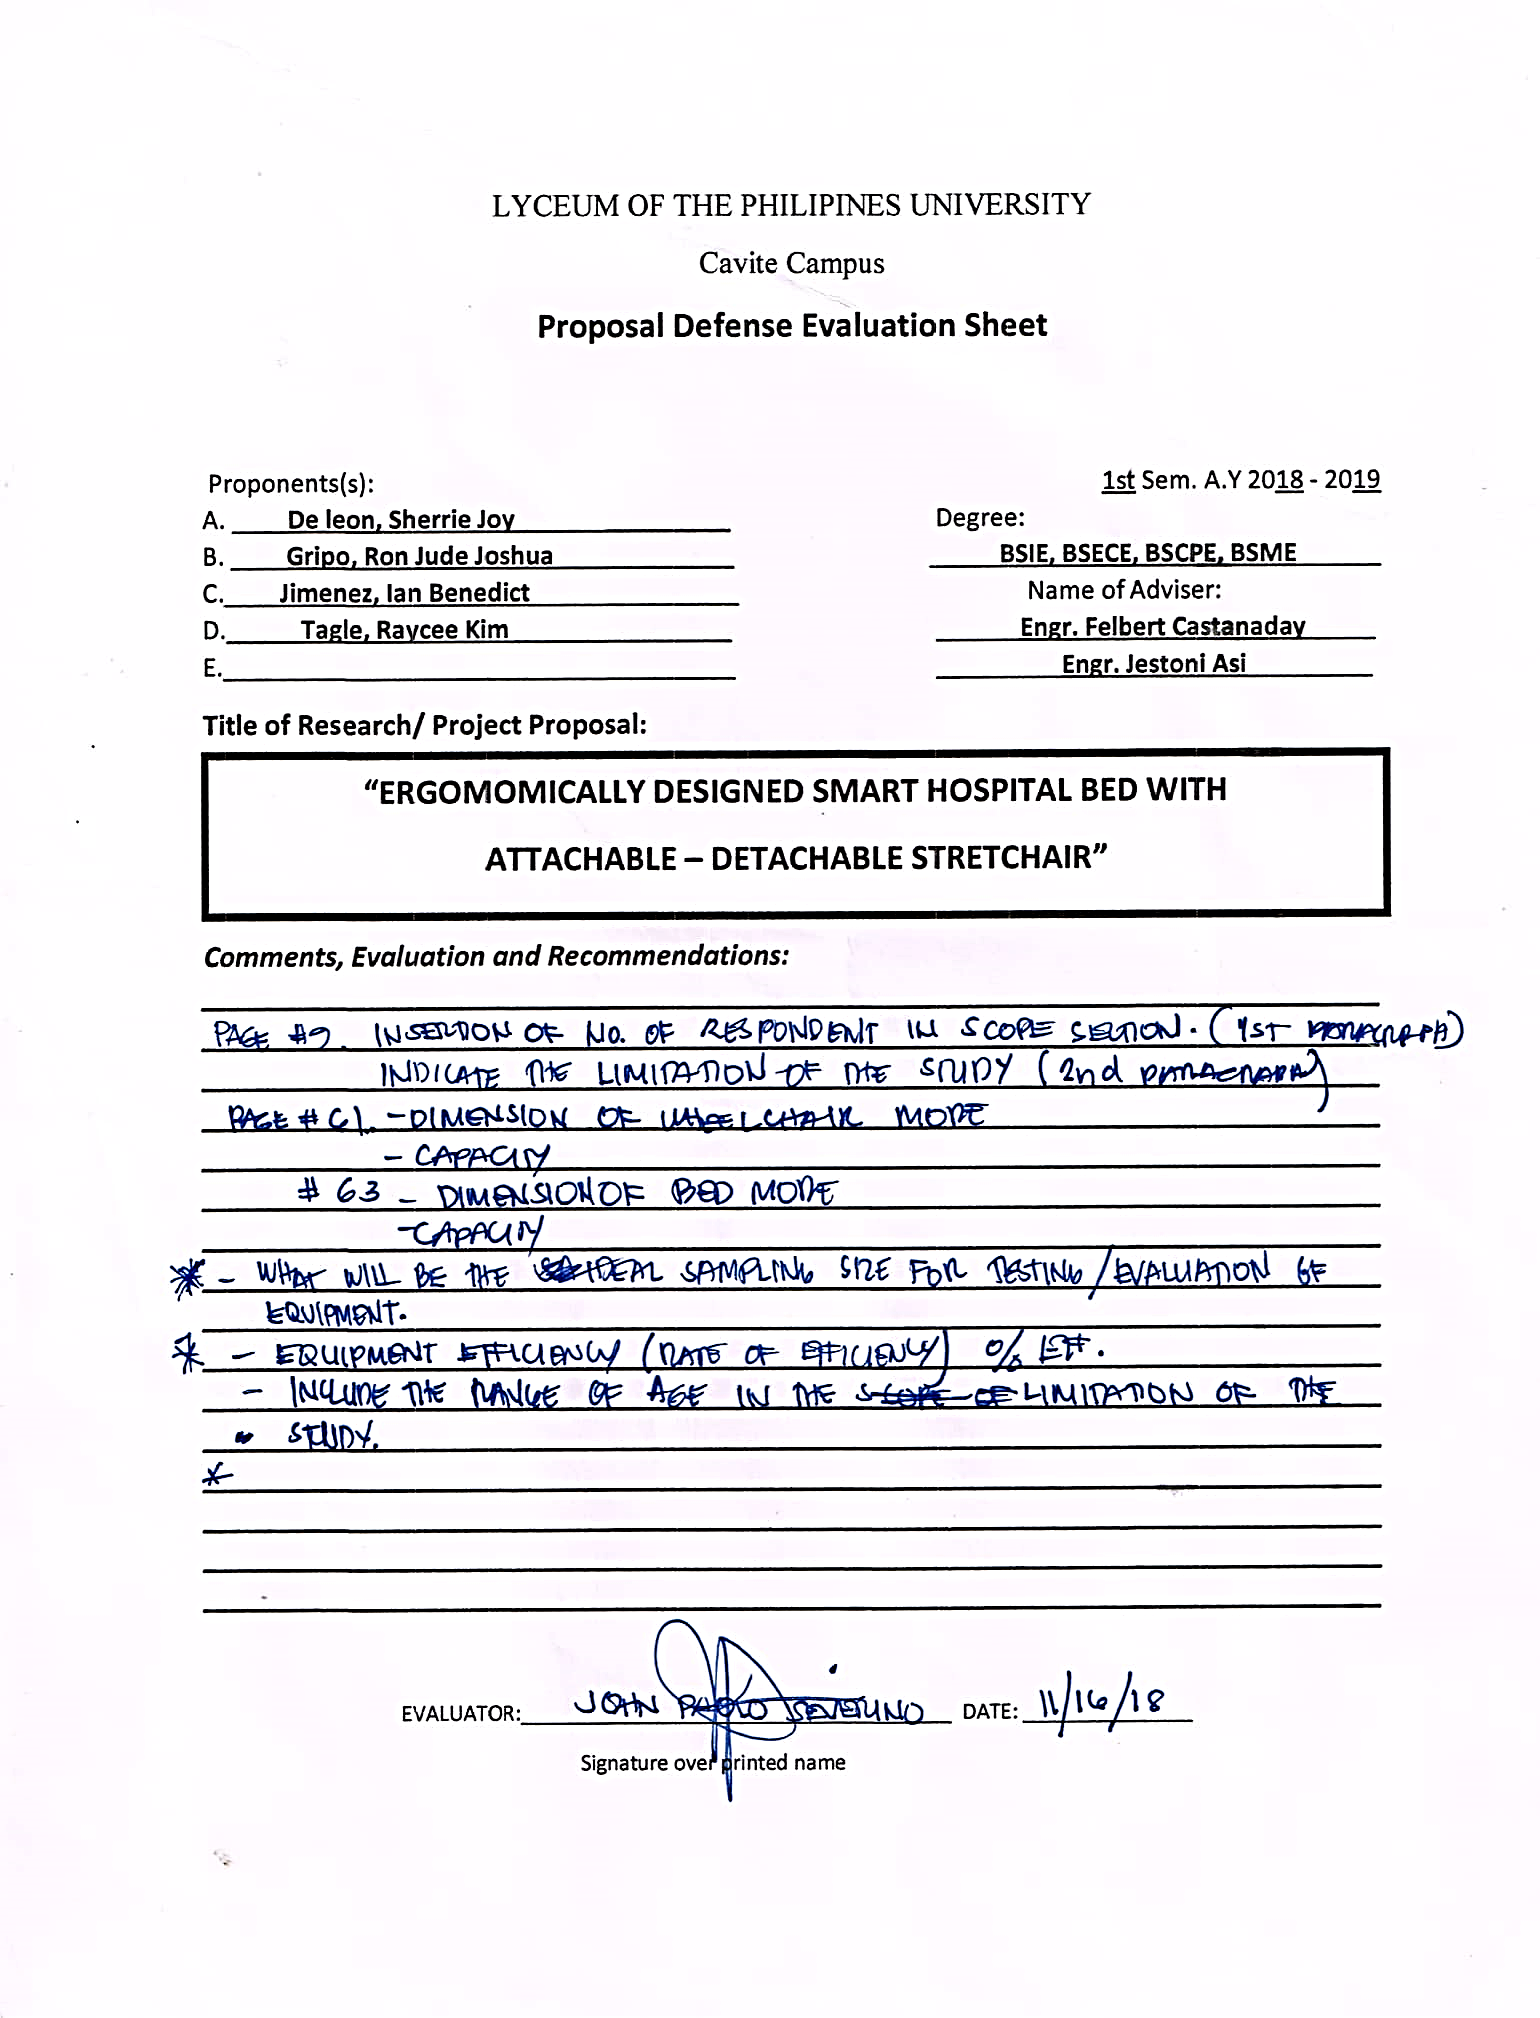 LYCEUM OF THE PHILIPINES UNIVERSITY
Cavite Campus
Proposal Defense Evaluation Sheet
Proponents(s):
1st Sem. A.Y 2018 - 2019
A. De leon, Sherrie Joy
Degree:
B. Gripo, Ron Jude Joshua
BSIE, BSECE, BSCPE, BSME
C. Jimenez, Ian Benedict
Name of Adviser:
D. Tagle, Raycee Kim
Engr. Felbert Castanaday
E.
Engr. Jestoni Asi
Title of Research/ Project Proposal:
“ERGOMOMICALLY DESIGNED SMART HOSPITAL BED WITH
ATTACHABLE – DETACHABLE STRETCHAIR”
Comments, Evaluation and Recommendations:
PAGE #9. INSERTION OF NO. OF RESPONDENT IN SCOPE SECTION. (1ST PARAGRAPH)
INDICATE THE LIMITATION OF THE STUDY (2nd PARAGRAPH)
PAGE # 61. - DIMENSION OF WHEELCHAIR MODE
- CAPACITY
# 63 - DIMENSION OF BED MODE
- CAPACITY
* - WHAT WILL BE THE IDEAL SAMPLING SIZE FOR TESTING/EVALUATION OF
EQUIPMENT.
* - EQUIPMENT EFFICIENCY (RATE OF EFFICIENCY) % EFF.
- INCLUDE THE RANGE OF AGE IN THE SCOPE OF LIMITATION OF THE
STUDY.
*
EVALUATOR: JOHN PAOLO SEVERINO DATE: 11/16/18
Signature over printed name